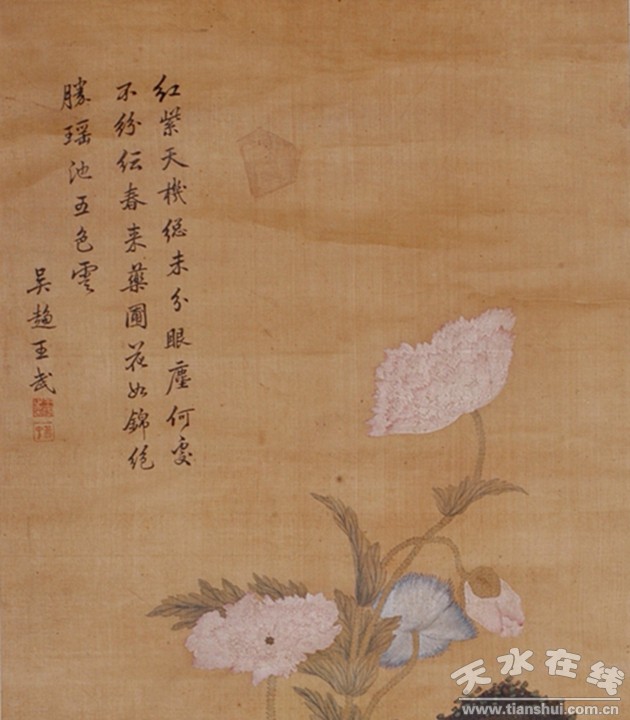 红紫天機總未分眼塵何處
不紛紜春来藥圃花如錦絕
勝瑶池五色雲
吴趨王武
天水在线
www.tianshui.com.cn